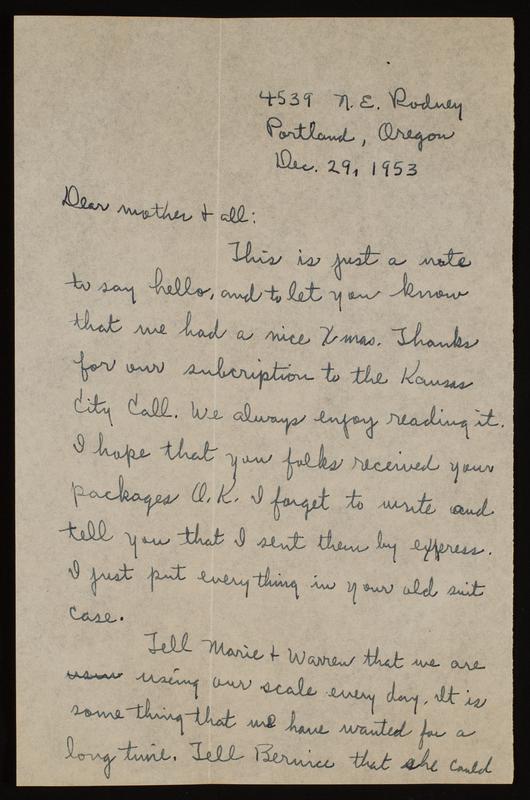 4539 N.E. Rodney
Portland, Oregon
Dec. 29, 1953
Dear mother & all:
This is just a note
to say hello, and to let you know
that we had a nice Xmas. Thanks
for our subcription to the Kansas
City Call. We always enjoy reading it.
I hope that you folks received your
packages O.K. I forget to write and
tell you that I sent them by express.
I just put everything in your old suit
case.
Tell Marie & Warren that we are
useing our scale every day. It is
something that we have wanted for a
long time. Tell Bernice that she could